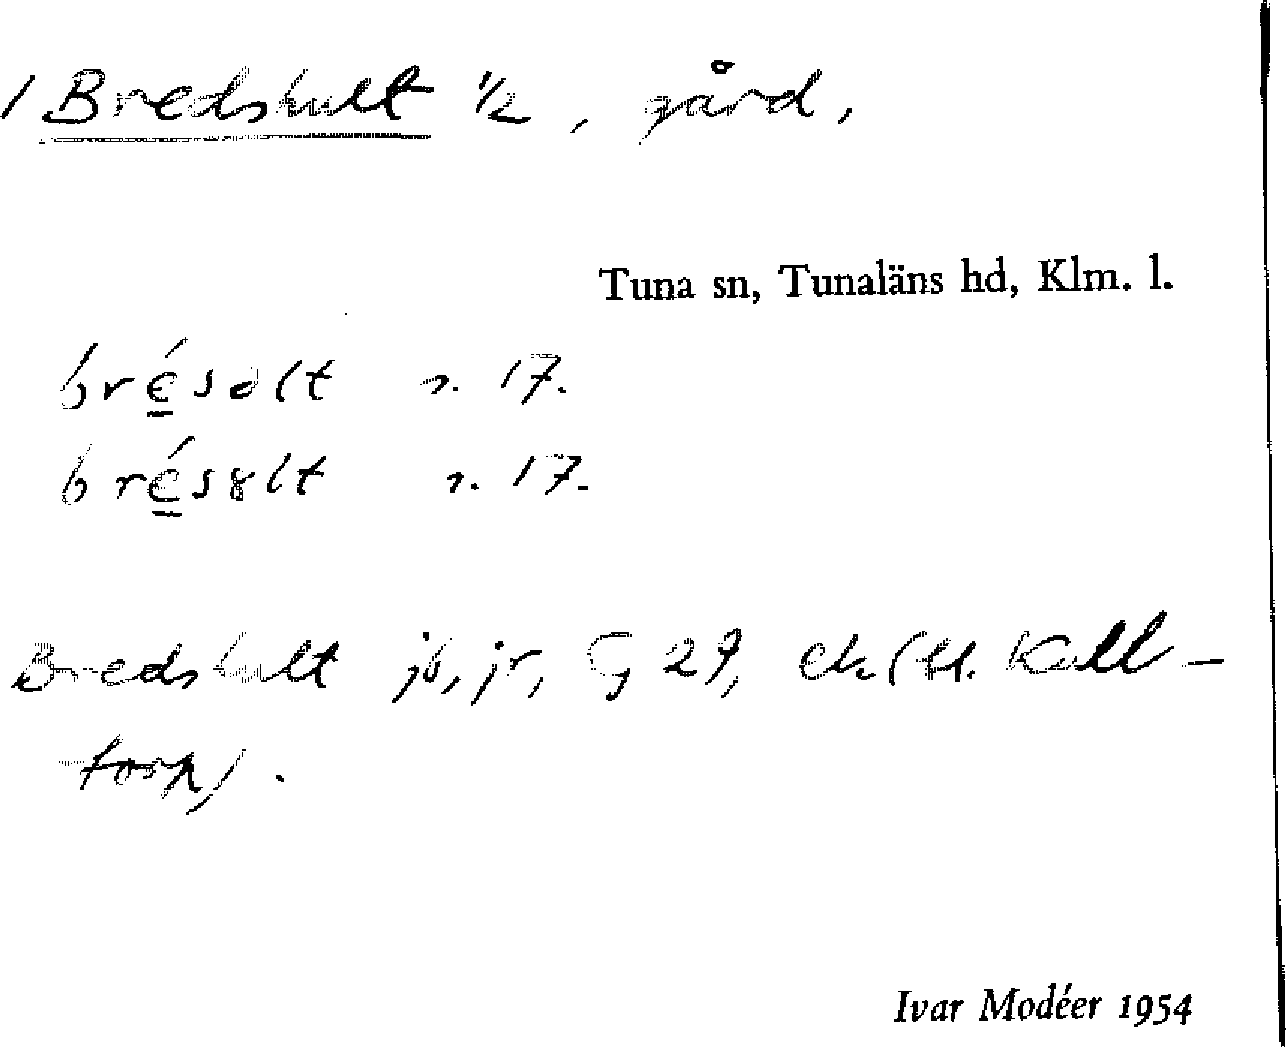 / Bredshult 1/2, gård,
Tuna sn, Tunaläns hd, Klm. l.
brésolt r. 17.
brésɤlt r. 17.
Bredshult jb, jr, G 29, ek (bl. Kull-
torp).
Ivar Modéer 1954